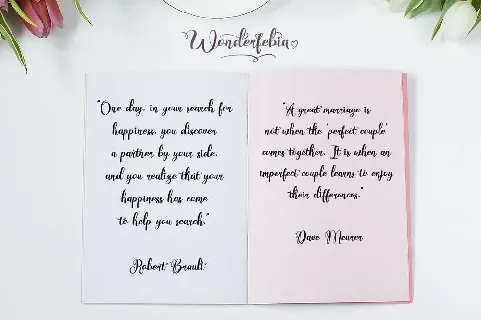 Wonderfebia
"One day, in your search for
happiness, you discover
a partner by your side,
and you realize that your
happiness has come
to help you search."
Robert Brault
"A great marriage is
not when the 'perfect couple'
comes together. It is when an
imperfect couple learns to enjoy
their differences."
Dave Meurer